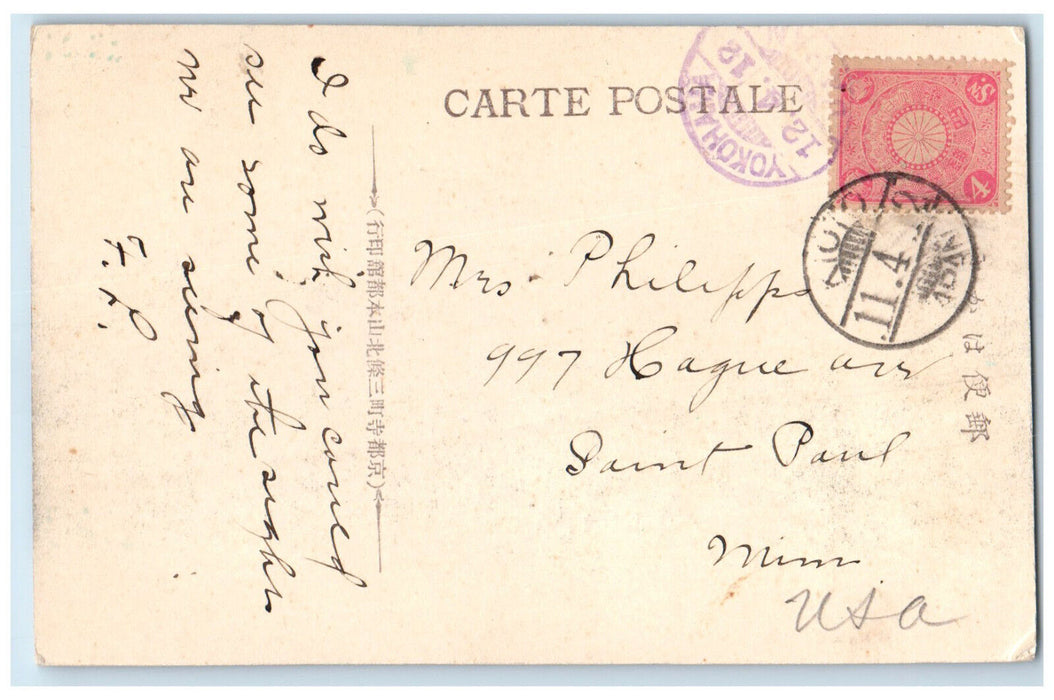 CARTE POSTALE
YOKOHAMA
12.4.12
4 Sn.
KIOTO
11.4.12
JAPAN
郵便はかき
Mrs Philipps
997 Hague ave
Saint Paul
Minn
USA
(京都寺町三條北山本都新舘印行)
I do wish you could
see some of the sights
we are seeing
F. L.